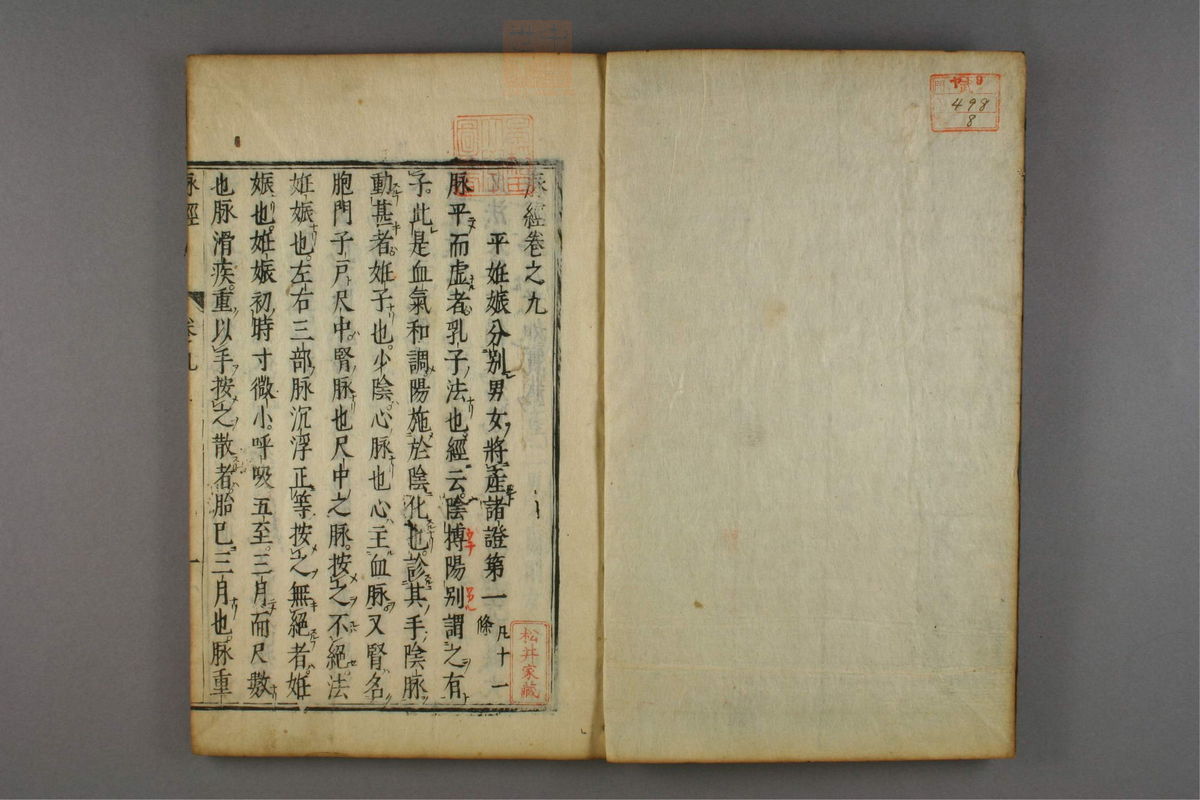 498
8
脉經卷之九
平姙娠分别男女將産諸證第一 凡十一條
脉平而虚者乳子法也經云陰搏陽别謂之有
子此是血氣和調陽施於陰化也診其手陰脉
動甚者姙子也少陰心脉也心主血脉又腎名
胞門子戸尺中腎脉也尺中之脉按之不絕法
姙娠也左右三部脉沉浮正等按之無絕者姙
娠也姙娠初時寸微小呼吸五至三月而尺數
也脉滑疾重以手按之散者胎已三月也脉重
脉經
卷九
一
松井家藏